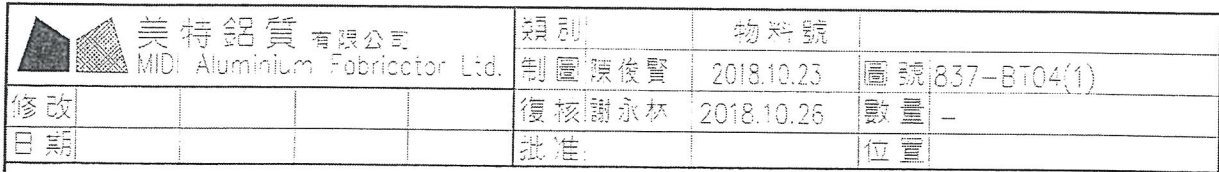 美特鋁質有限公司
MIDI Aluminium Fabricator Ltd.
類別 物料號
制圖 陳俊賢 2018.10.23 圖號 837-BT04(1)
修改 復核 謝永林 2018.10.26 數量 -
日期 批准 位置